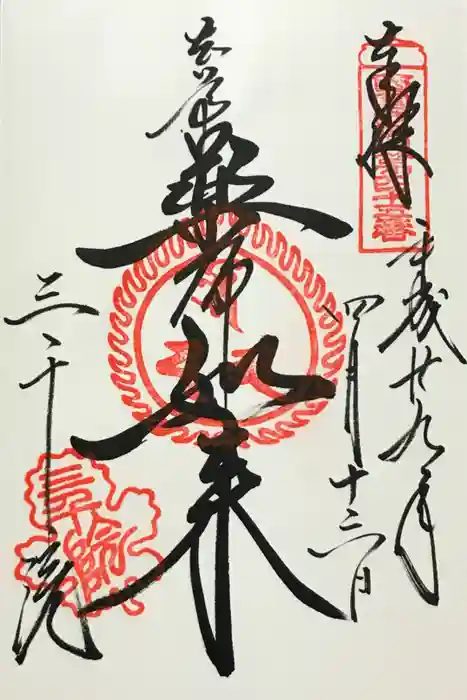 奉拝
平成廿九年
四月十三日
本尊
薬師如来
三千院